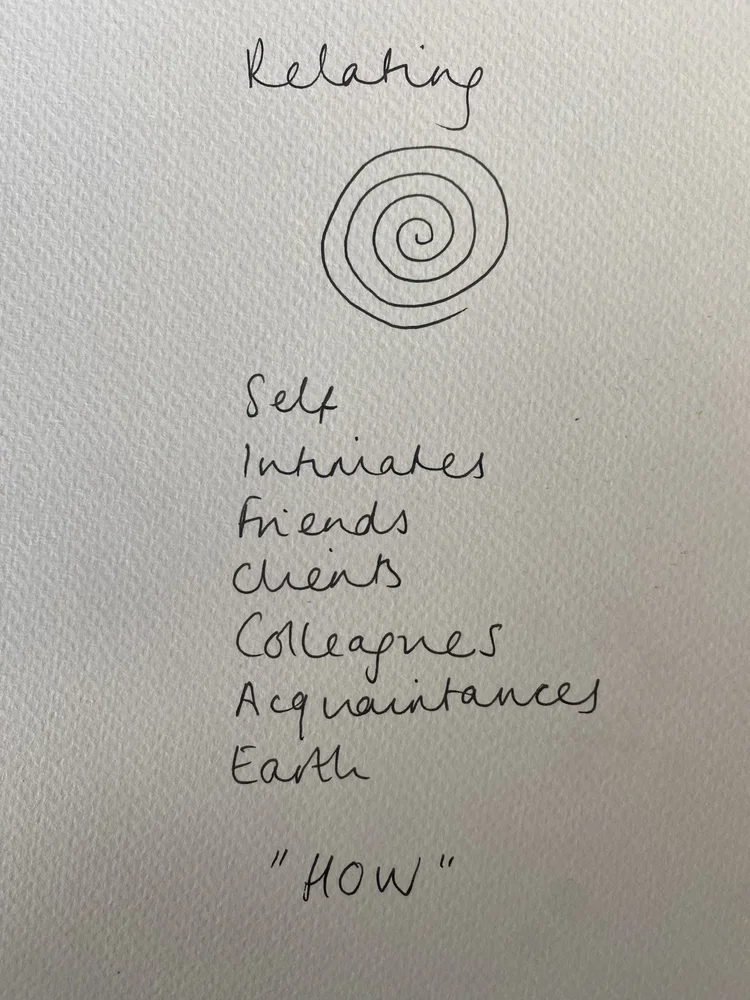 Relating
Self
Intimates
Friends
Clients
Colleagues
Acquaintances
Earth
"HOW"